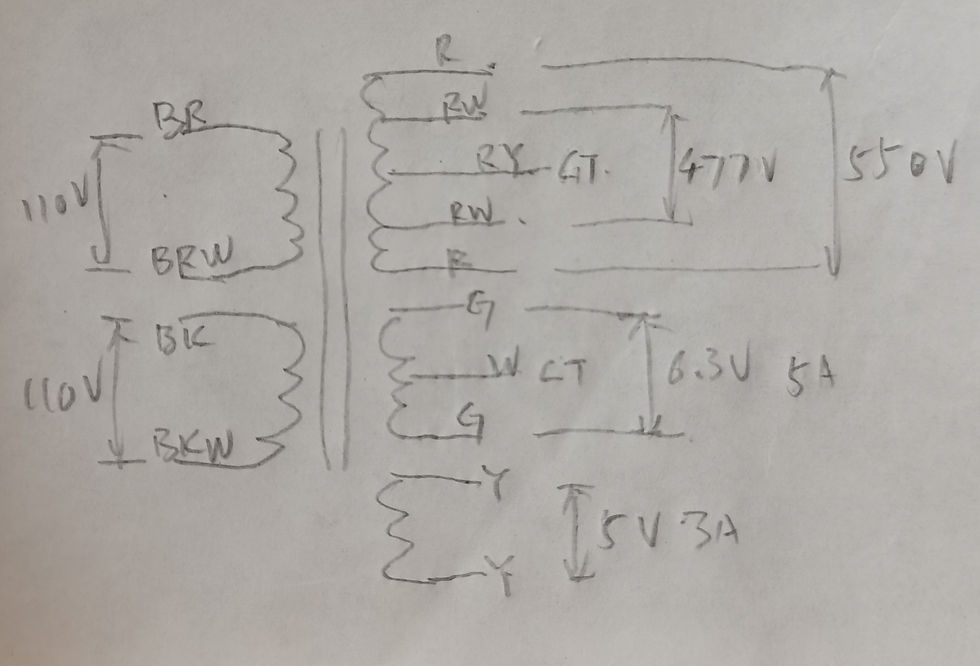 R
BR
RW
110V
RY CT.
477V
550V
RW
BRW
R
G
BK
110V
W CT
6.3V 5A
G
BKW
Y
5V 3A
Y